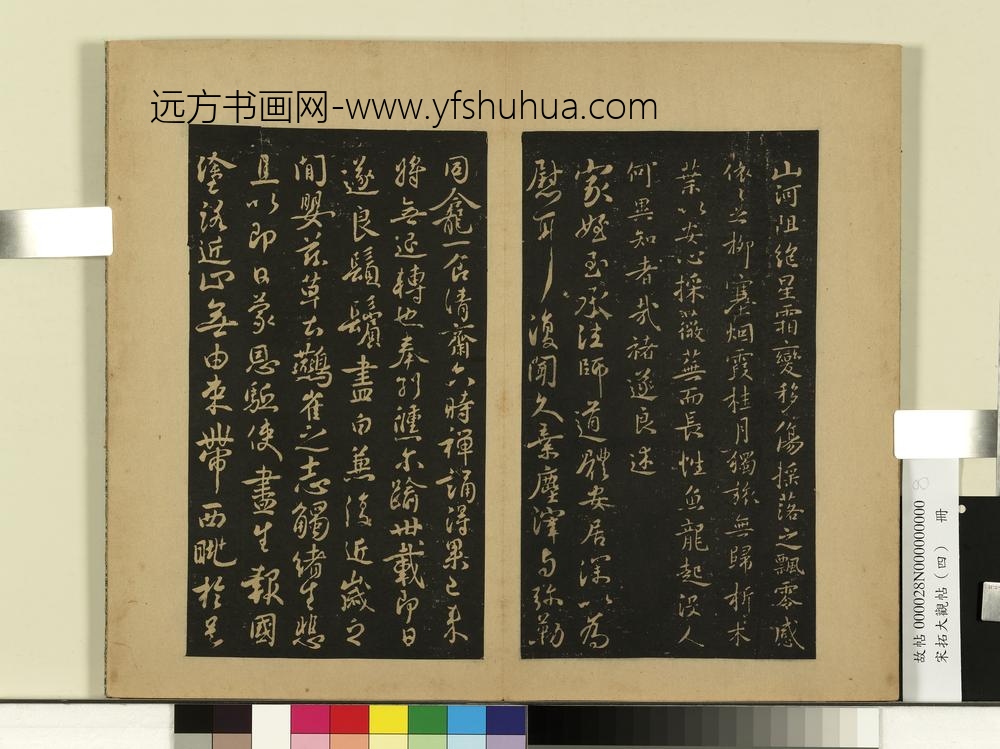 远方书画网-www.yfshuhua.com
山河阻絶星霜變移傷採落之飄零感
依依之柳塞烟霞桂月獨旅無歸折木
葉以安心採薇蕪而長性魚龍起没人
何異知者哉褚遂良述
家姪至承法師道體安居深以為
慰耳復聞久棄塵滓与弥勒
同龕一食清齋六時禪誦得果已来
將無退轉也奉別倏尓踰卅載即日
遂良鬚鬢盡白兼復近歲之
間嬰兹草土鷰雀之志觸緒生悲
且以即日蒙恩驅使盡生報國
塗路近止無由束帶西眺於悒
故帖 000028N000000000
宋拓大觀帖（四） 冊
8